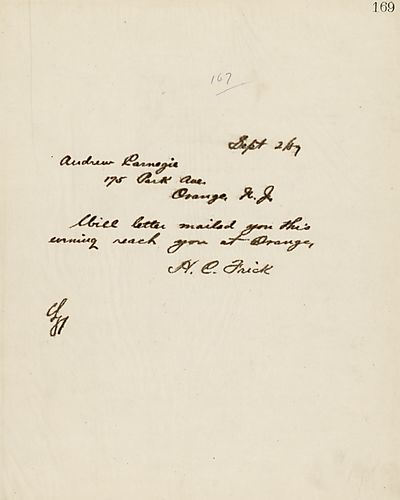 169
167
Sept 2/89
Andrew Carnegie
175 Park Ave.
Orange, N. J.
Will letter mailed you this
evening reach you at Orange,
H. C. Frick